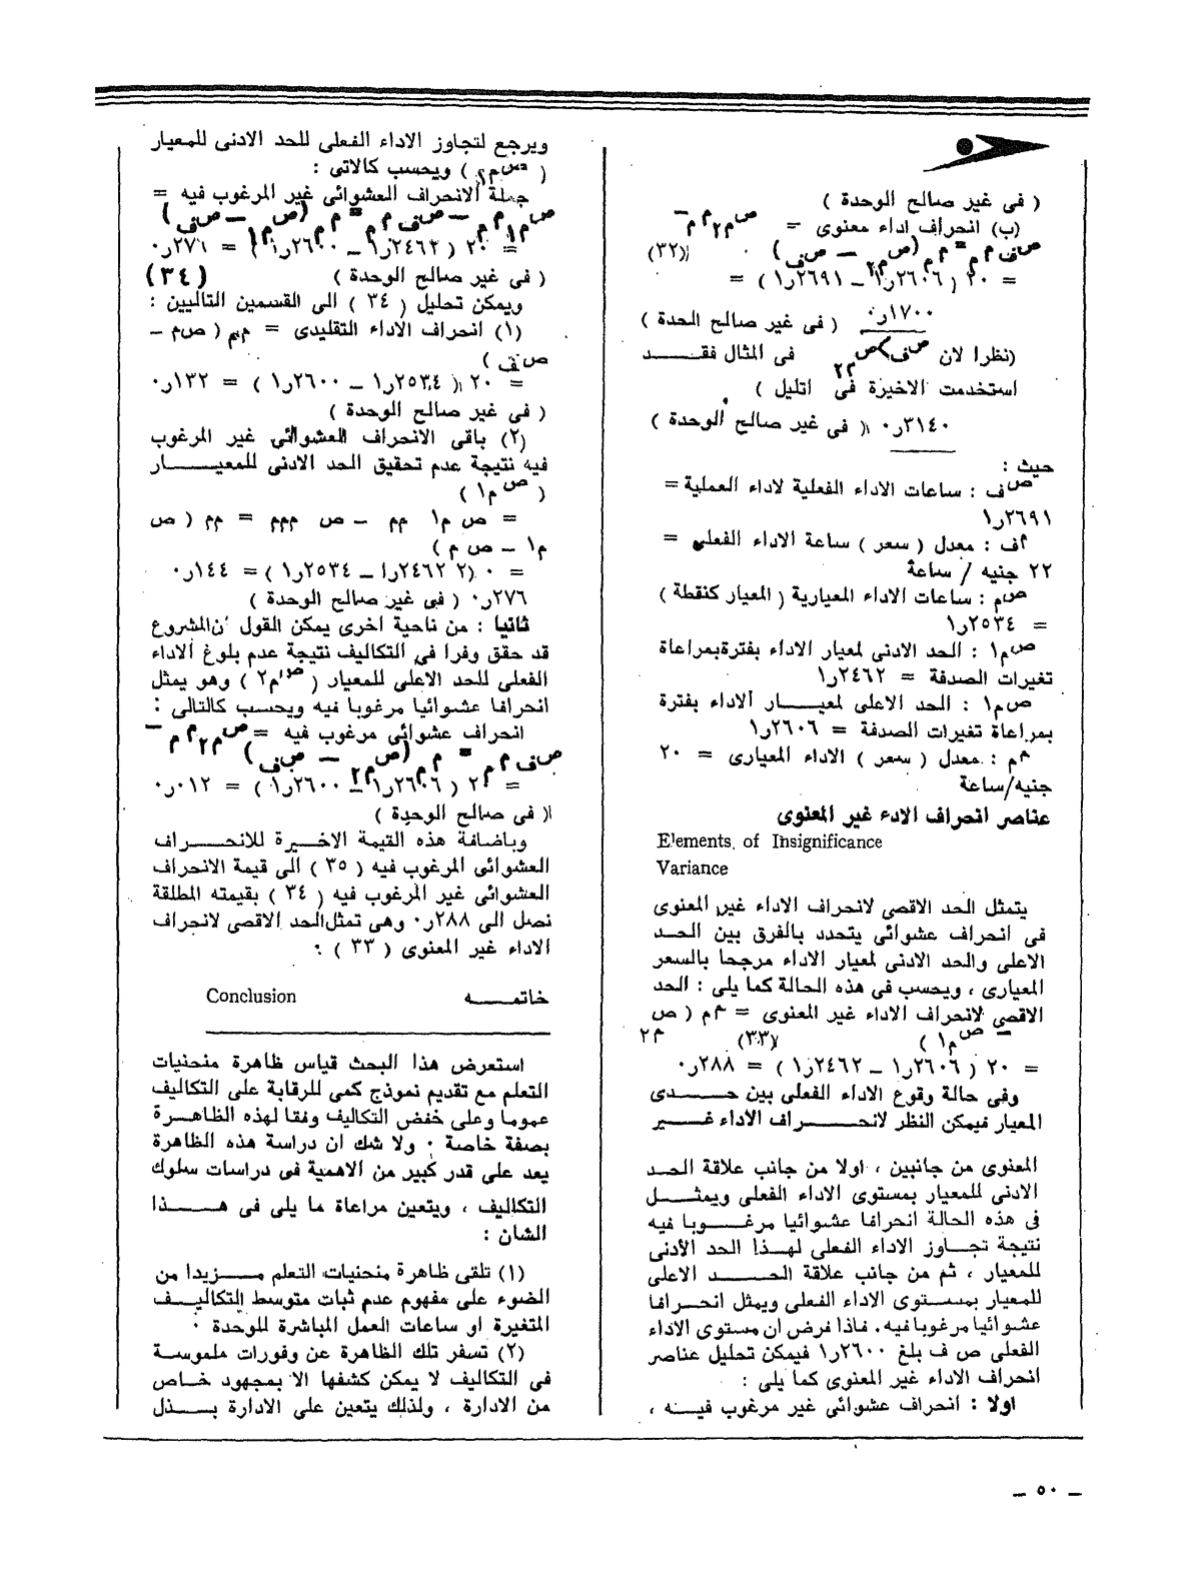 ( فى غير صالح الوحدة )
(ب) انحراف اداء معنوى = ص م٢ م م –
ص ف م م = م م (ص م٢ – ص ف) (٣٢)
= ٢٠ ( ٢٦٠٦ر١ – ٢٦٩١ر١ ) =
١٧٠٠ر٠ ( فى غير صالح الحدة )
(نظرا لان ص ف > ص م٢ فى المثال فقـــد
استخدمت الاخيرة فى اتليل )
٣١٤٠ر٠ ( فى غير صالح الوحدة )
حيث :
ص ف : ساعات الاداء الفعلية لاداء العملية =
٢٦٩١ر١
م ف : معدل ( سعر ) ساعة الاداء الفعلى =
٢٢ جنيه / ساعة
ص م : ساعات الاداء المعيارية ( المعيار كنقطة )
= ٢٥٣٤ر١
ص م١ : الحد الادنى لمعيار الاداء بفترة بمراعاة
تغيرات الصدفة = ٢٤٦٢ر١
ص م١ : الحد الاعلى لمعيـــار الاداء بفترة
بمراعاة تغيرات الصدفة = ٢٦٠٦ر١
م م : معدل ( سعر ) الاداء المعيارى = ٢٠
جنيه/ساعة
عناصر انحراف الادء غير المعنوى
Elements of Insignificance
Variance
يتمثل الحد الاقصى لانحراف الاداء غير المعنوى
فى انحراف عشوائى يتحدد بالفرق بين الحـد
الاعلى والحد الادنى لمعيار الاداء مرجحا بالسعر
المعيارى ، ويحسب فى هذه الحالة كما يلى : الحد
الاقصى لانحراف الاداء غير المعنوى = م م ( ص م٢
– ص م١ ) (٣٣)
= ٢٠ ( ٢٦٠٦ر١ – ٢٤٦٢ر١ ) = ٢٨٨ر٠
وفى حالة وقوع الاداء الفعلى بين حـــدى
المعيار فيمكن النظر لانحـــراف الاداء غـــير
المعنوى من جانبين ، اولا من جانب علاقة الحـد
الادنى للمعيار بمستوى الاداء الفعلى ويمثـــل
فى هذه الحالة انحرافا عشوائيا مرغـــوبا فيه
نتيجة تجـاوز الاداء الفعلى لهـذا الحد الأدنى
للمعيار ، ثم من جانب علاقة الحـــد الاعلى
للمعيار بمستوى الاداء الفعلى ويمثل انحـرافا
عشوائيا مرغوبا فيه. فاذا فرض ان مستوى الاداء
الفعلى ص ف بلغ ٢٦٠٠ر١ فيمكن تحليل عناصر
انحراف الاداء غير المعنوى كما يلى :
اولا : انحراف عشوائى غير مرغوب فيـه ،
ويرجع لتجاوز الاداء الفعلى للحد الادنى للمعيار
( ص م١ ) ويحسب كالاتى :
جملة الانحراف العشوائى غير المرغوب فيه =
ص م١ م م – ص ف م م = م م (ص م١ – ص ف)
= ٢٠ ( ٢٤٦٢ر١ – ٢٦٠٠ر١ ) = ٢٧٦ر٠
( فى غير صالح الوحدة ) (٣٤)
ويمكن تحليل ( ٣٤ ) الى القسمين التاليين :
(١) انحراف الاداء التقليدى = م م ( ص م –
ص ف )
= ٢٠ ( ٢٥٣٤ر١ – ٢٦٠٠ر١ ) = ١٣٢ر٠
( فى غير صالح الوحدة )
(٢) باقى الانحراف العشوائى غير المرغوب
فيه نتيجة عدم تحقيق الحد الادنى للمعيـــار
( ص م١ )
= ص م١ م م – ص م م م = م م ( ص
م١ – ص م )
= ٠ (٢ ٢٤٦٢ر١ – ٢٥٣٤ر١ ) = ١٤٤ر٠
٢٧٦ر٠ ( فى غير صالح الوحدة )
ثانيا : من ناحية اخرى يمكن القول أن المشروع
قد حقق وفرا فى التكاليف نتيجة عدم بلوغ الأداء
الفعلى للحد الاعلى للمعيار ( ص م٢ ) وهو يمثل
انحرافا عشوائيا مرغوبا فيه ويحسب كالتالى :
انحراف عشوائى مرغوب فيه = ص م٢ م م –
ص ف م م = م م (ص م٢ – ص ف)
= ٢٠ ( ٢٦٠٦ر١ – ٢٦٠٠ر١ ) = ٠١٢ر٠
( فى صالح الوحدة )
وباضافة هذه القيمة الاخـيرة للانحـــراف
العشوائى المرغوب فيه ( ٣٥ ) الى قيمة الانحراف
العشوائى غير المرغوب فيه ( ٣٤ ) بقيمته المطلقة
نصل الى ٢٨٨ر٠ وهى تمثل الحد الاقصى لانحراف
الاداء غير المعنوى ( ٣٣ ) .
خاتمـــه Conclusion
استعرض هذا البحث قياس ظاهرة منحنيات
التعلم مع تقديم نموذج كمى للرقابة على التكاليف
عموما وعلى خفض التكاليف وفقا لهذه الظاهـرة
بصفة خاصة . ولا شك ان دراسة هذه الظاهرة
يعد على قدر كبير من الاهمية فى دراسات سلوك
التكاليف ، ويتعين مراعاة ما يلى فى هـــذا
الشان :
(١) تلقى ظاهرة منحنيات التعلم مـــزيدا من
الضوء على مفهوم عدم ثبات متوسط التكاليـــف
المتغيرة او ساعات العمل المباشرة للوحدة .
(٢) تسفر تلك الظاهرة عن وفورات ملموسة
فى التكاليف لا يمكن كشفها الا بمجهود خـاص
من الادارة ، ولذلك يتعين على الادارة بـــذل
– ٥٠ –